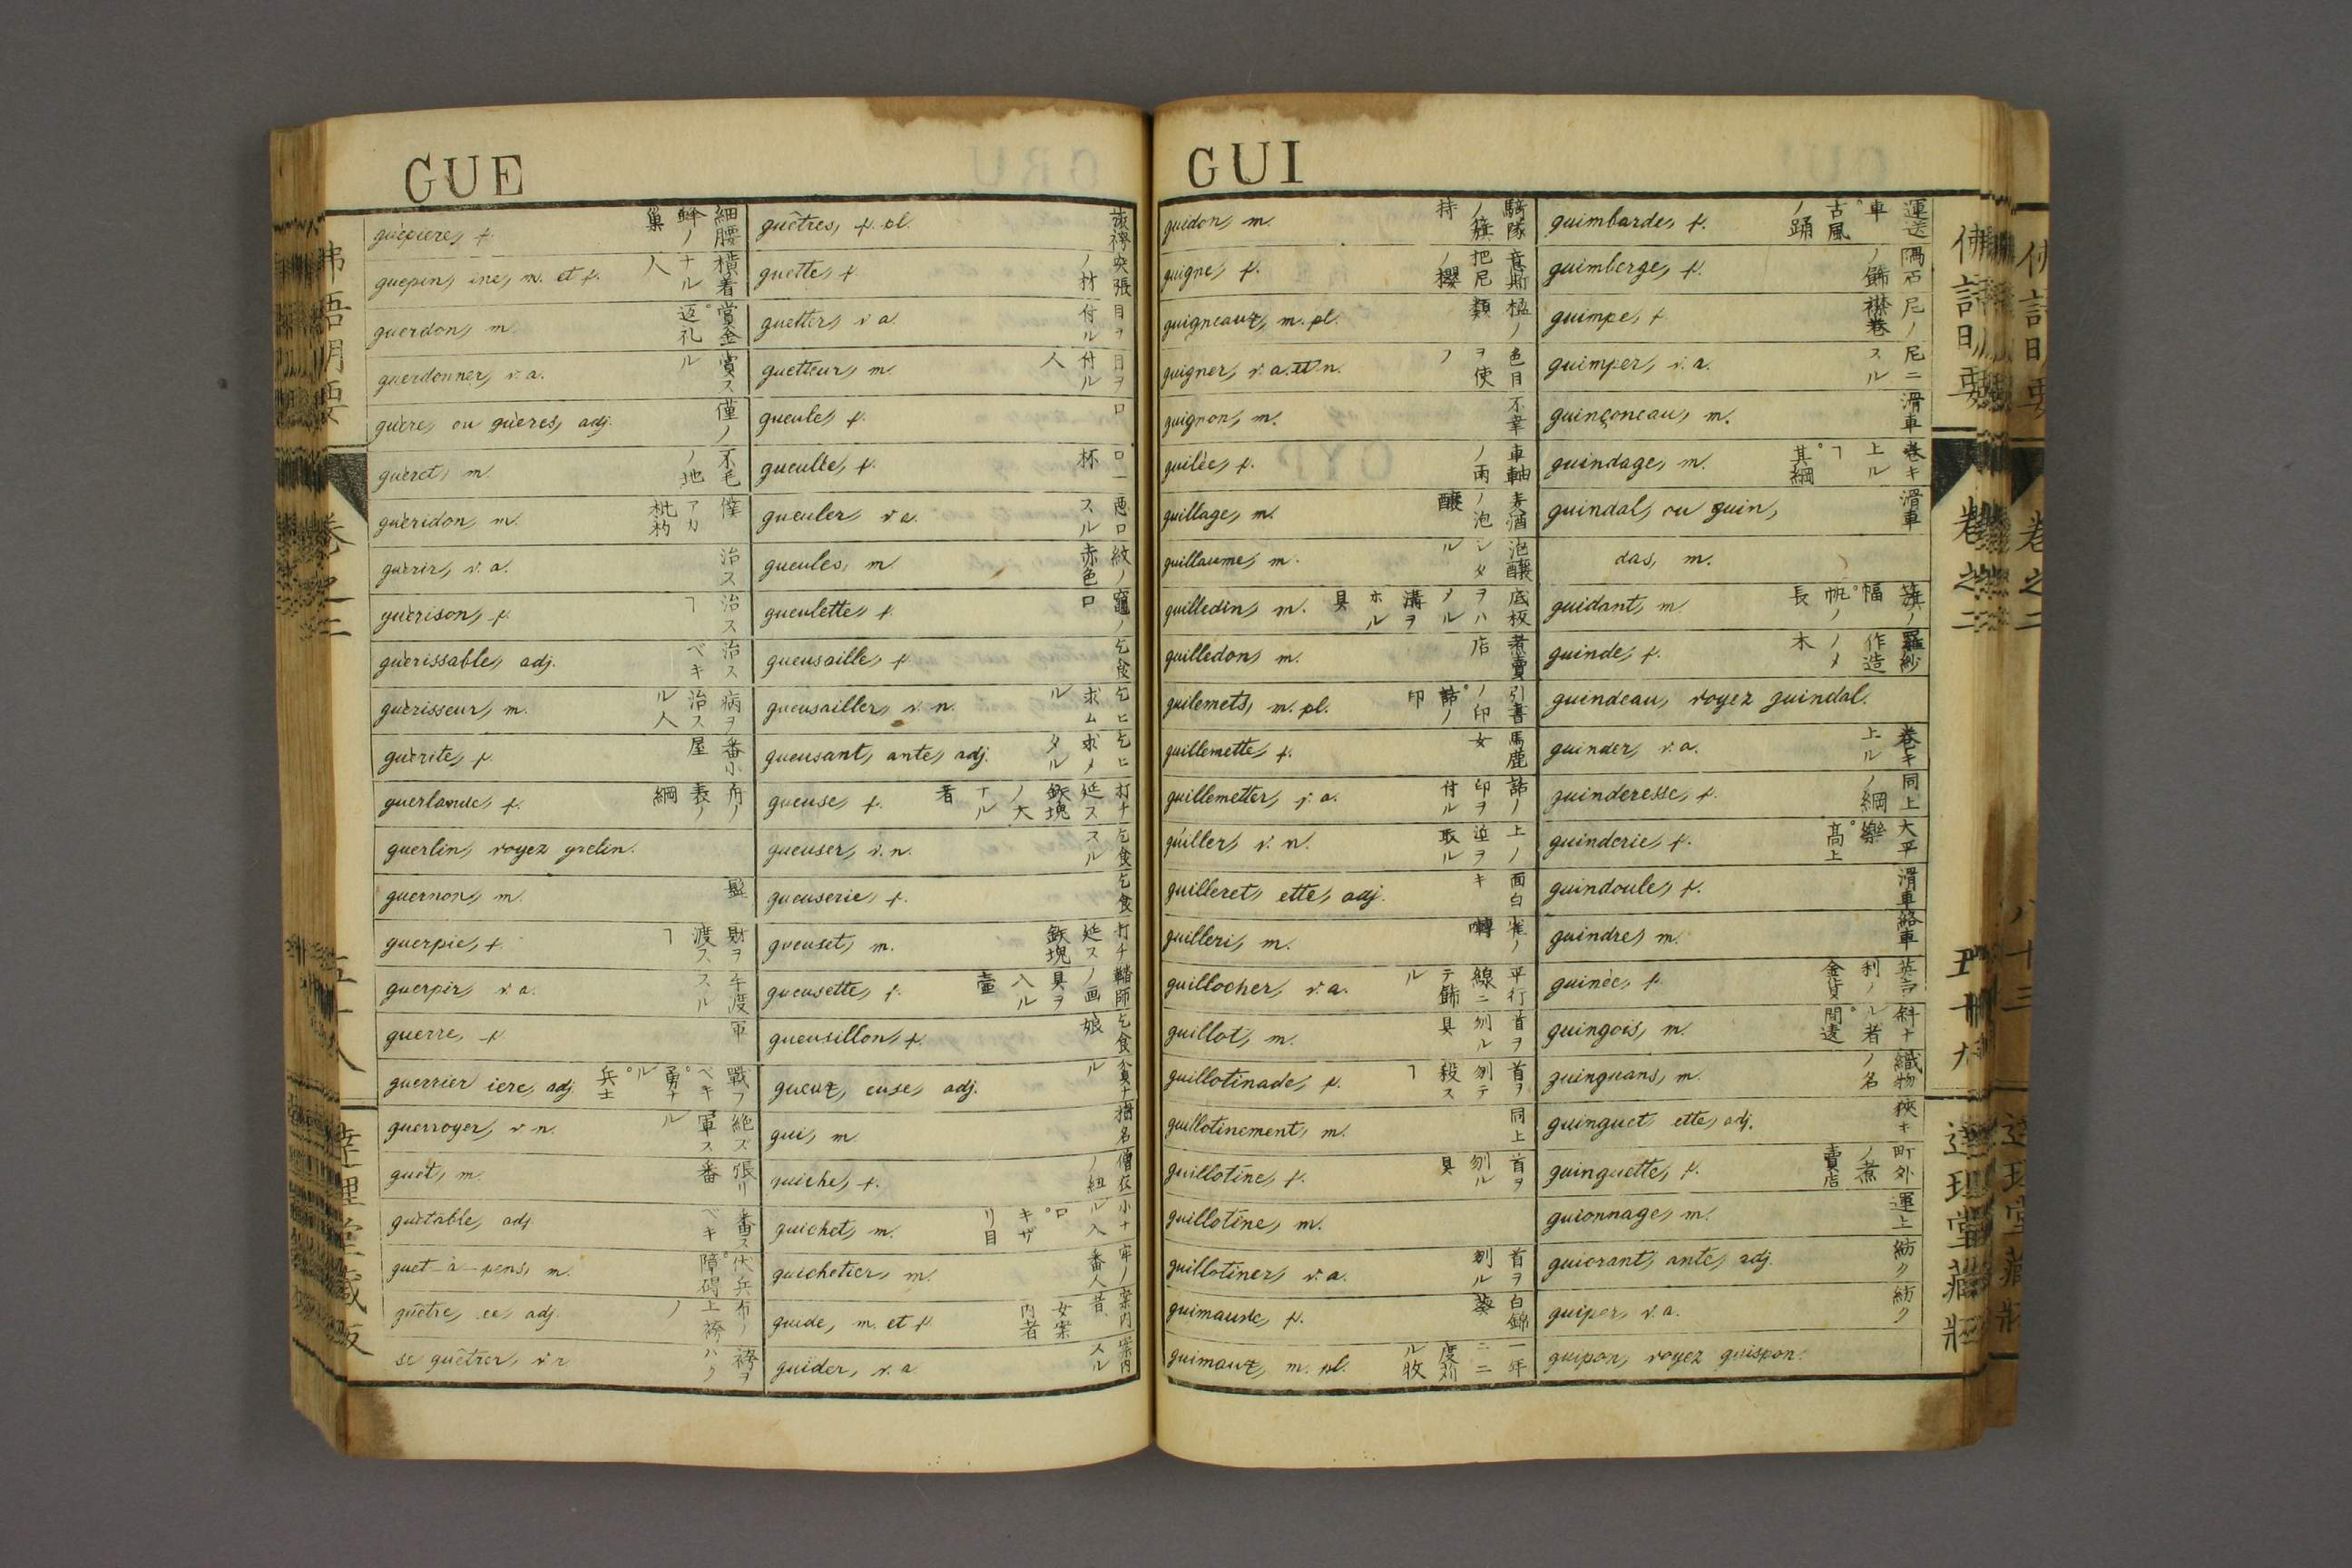 GUE
guêpiere, f. 細腰蜂ノ巣
guepin, ine, m. et f. 横着ナル人
guerdon, m. 賞金。返礼
guerdonner, v. a. 賞スル
guère, ou guères, adj. 僅ノ
guèret, m 不毛ノ地
guèridon, m.
guèrir, v. a. 治ス
guèrison, f. 治スヿ
guèrissable, adj. 治スベキ
guèrisseur, m. 病ヲ治スル人
guèrite, f. 番小屋
guerlande, f. 舟ノ表ノ綱
guerlin, voyez grelin.
guernon, m. 髭
guerpie, f. 財ヲ渡スヿ
guerpir, v. a. 手渡スル
guerre, f. 軍
guerrier iere, adj. 戰フベキ。勇ナル。兵士
guerroyer, v. n. 絶ズ軍スル
guet, m. 張リ番
guètable, adj 番スベキ
guet-à-pens, m. 伏兵。障碍
guêtre, ee, adj. 布ノ上袴ノ
se guêtrer, v. r 袴ヲハク
guêtres, f. pl.
guette, f.
guetter, v a 目ヲ付ル
guetteur, m. 目ヲ付ル人
gueule, f. 口
gueulée, f. 口一杯
gueuler, v. a. 悪口スル
gueules, m 紋ノ赤色
gueulette, f. 竈ノ口
gueusaille, f. 乞食
gueusailler, v. n. 乞ヒ求ムル
gueusant, ante, adj. 乞ヒ求メタル
gueuse, f. 打チ延ス鉄塊ノ大ナル者
gueuser, v. n. 乞食スル
gueuserie, f. 乞食
gueuset, m. 打チ延ス鉄塊
gueusette, f. 鞜師ノ画具ヲ入ル壷
gueusillon, f. 乞食娘
gueux, euse, adj. 貧ナル
gui, m 樹名
guiche, f. 僧衣ノ紐
guichet, m. 小ナル入口。キザリ目
guichetier, m. 牢ノ番人
guide, m. et f. 案内者。女案内者
guider, v. a 案内スル
GUI
guidon, m. 騎隊ノ籏持
guigne, f. 意斯把尼ノ櫻
guigneaux, m. pl. 類
guigner, v. a. et n. 色目ヲ使フ
guignon, m. 不幸
guilèe, f. 車軸ノ雨
guillage, m. 麦酒ノ泡醸
guillaume, m. 泡醸シタル
guilledin, m. 底板ヲハメル溝ヲホル具
guilledon, m. 煮賣店
guilemets, m. pl. 引書ノ印。語ノ印
guillemette, f. 馬鹿女
guillemetter, v. a. 語ノ印ヲ付ル
guiller, v. n. 上ノ泣ヲ取ル
guilleret, ette, adj. 面白キ
guilleri, m. 雀ノ囀
guillocher, v. a. 平行線ニテ飾ル
guillot, m. 首ヲ刎ル具
guillotinade, f. 首ヲ刎テ殺スヿ
guillotinement, m. 同上
guillotine, f. 首ヲ刎ル具
guillotine, m.
guillotiner, v. a. 首ヲ刎ル
guimauve, f. 白錦葵
guimaux, m. pl. 一年ニ二度苅ル牧
guimbarde, f. 運送車。古風ノ踊
guimberge, f. 隅石ノ飾
guimpe, f. 尼ノ襟巻
guimper, v. a. 尼ニスル
guinçoneau, m. 滑車
guindage, m. 巻キ上ルヿ。其綱
guindal, ou guin, 滑車
das, m.
guidant, m 籏ノ幅。帆ノ長
guinde, f. 羅紗作造ノメ木
guindeau, voyez guindal.
guinder, v. a. 巻キ上ル
guinderesse, f. 同上ノ綱
guinderie, f. 大平樂。高上
guindoule, f. 滑車
guindre, m. 絡車
guinèe, f. 英吉利ノ金貨
guingois, m. 斜ナル者。間違
guinguans, m. 織物ノ名
guinguet, ette, adj. 狹キ
guinguette, f. 町外ノ煮賣店
guionnage, m. 運上
guiorant, ante, adj. 紡ク
guiper, v. a. 紡ク
guipon, voyez guispon.
佛語明要
卷之二
五十九
達理堂藏